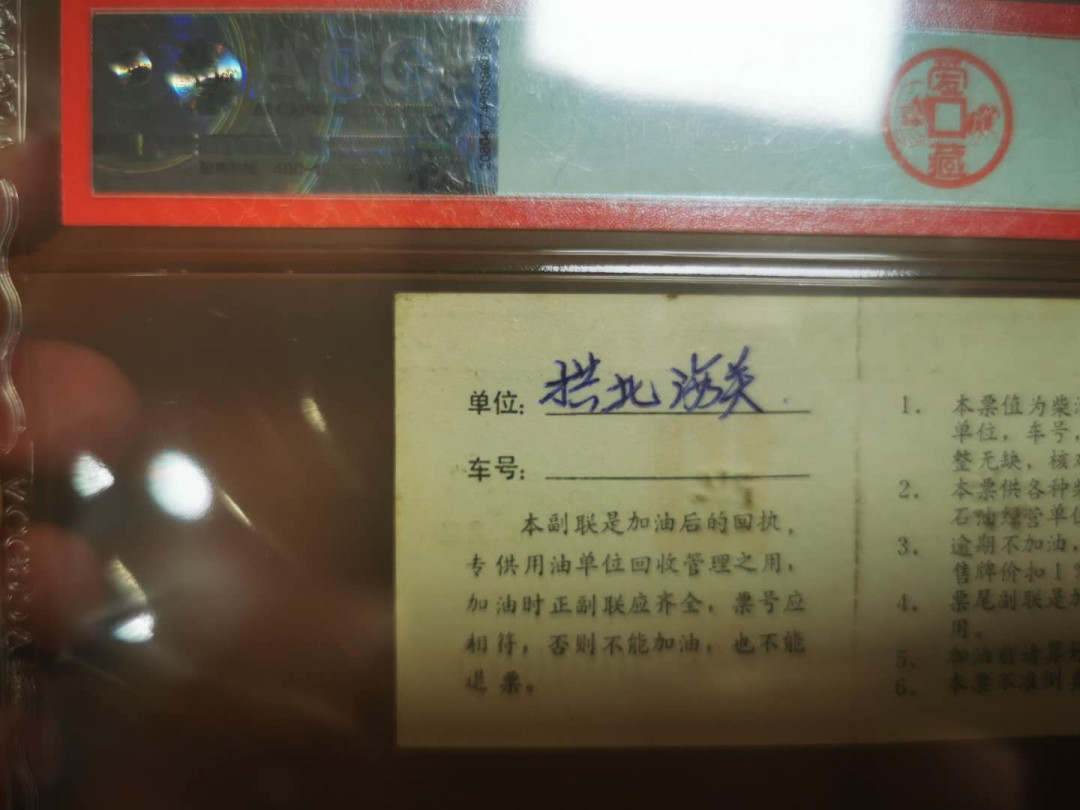 ACG
爱藏
单位：拱北海关
车号：
本副联是加油后的回执，
专供用油单位回收管理之用，
加油时正副联应齐全，票号应
相符，否则不能加油，也不能
退票。
1. 本票值为柴
单位，车号，
整无缺，核
2. 本票供各种
石油经营单位
3. 逾期不加油，
售牌价扣1
4. 票尾副联是
用。
5. 加油前请
6. 本票不准